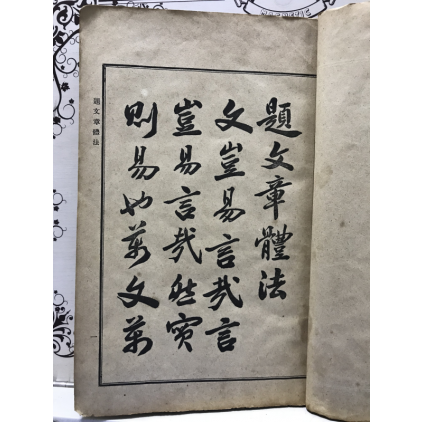 題文章體法
文豈易言哉言
豈易言哉然實
則易也萬文萬
題文章體法
一